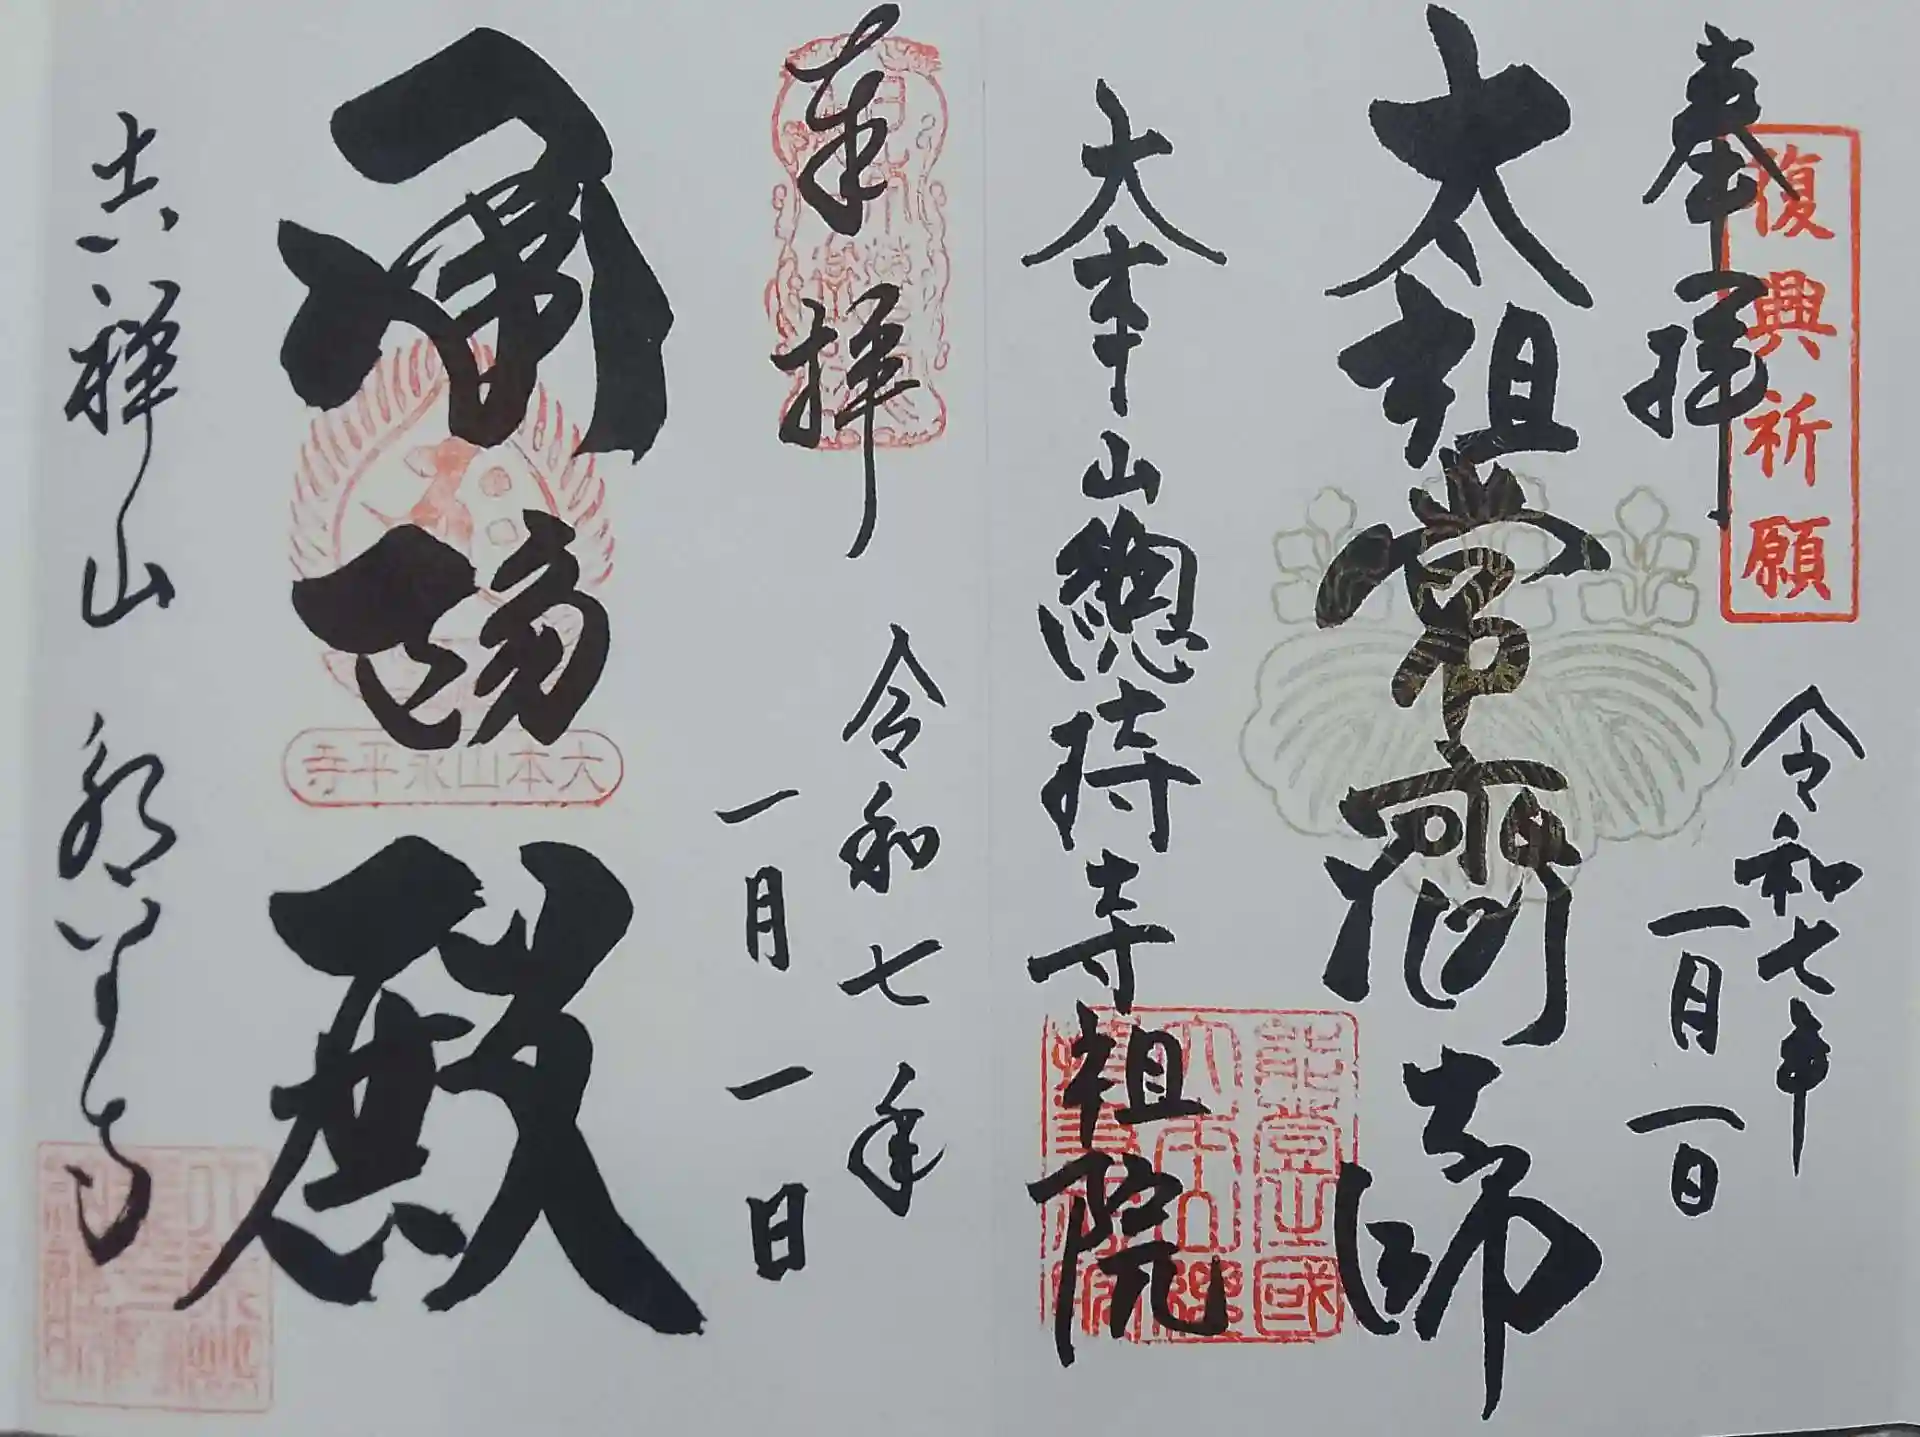 復興祈願
奉拝
令和七年
一月一日
太祖常濟大師
大本山總持寺祖院
奉拝
令和七年
一月一日
承陽殿
大本山永平寺
吉祥山永平寺